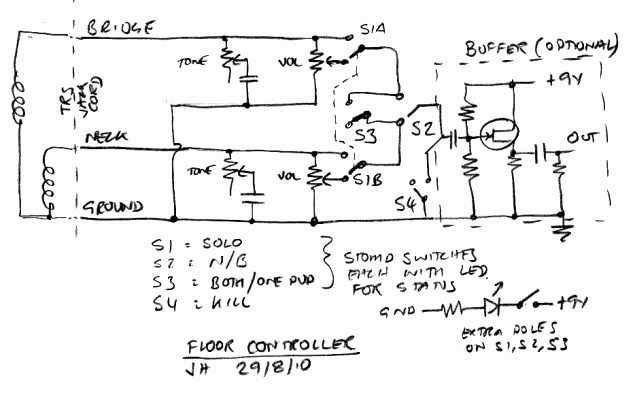 BRIDGE
S1A
BUFFER (OPTIONAL)
TONE
VOL
+9V
TRS
CORD
S3
S2
OUT
NECK
TONE
VOL
S1B
S4
GROUND
S1 = SOLO
S2 = N/B
S3 = BOTH/ONE
S4 = KILL
STOMP SWITCHES
EACH WITH LED
FOR STATUS
GND
+9V
EXTRA POLES
ON S1, S2, S3
FLOOR CONTROLLER
JH 29/8/10